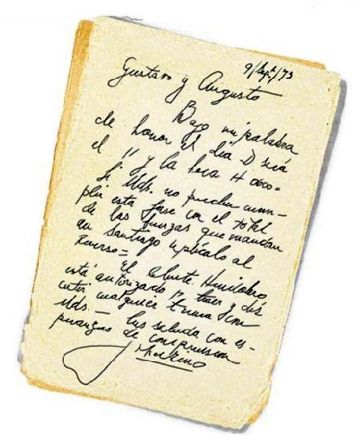 9/Sept/73
Gustavo y Augusto
Bajo mi palabra
de honor el día D será
el 11 y la hora H 0600.
Si Uds. no pueden cum-
plir esta fase con el total
de las fuerzas que mandan
en Santiago explícalo al
reverso=
El Almte Huidobro
está autorizado para traer y dis
cutir cualquier tema con
Uds.— Los saluda con es-
peranzas de comprensión
J Merino